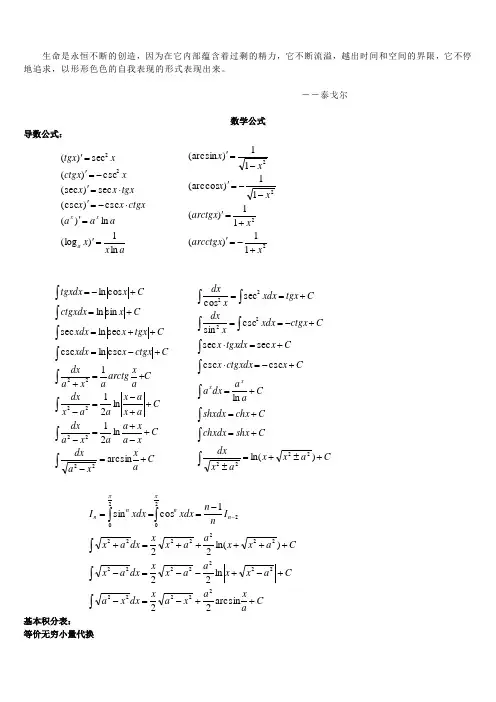 生命是永恒不断的创造，因为在它内部蕴含着过剩的精力，它不断流溢，越出时间和空间的界限，它不停
地追求，以形形色色的自我表现的形式表现出来。
－－泰戈尔
数学公式
导数公式：
(tgx)′ = sec² x
(ctgx)′ = −csc² x
(sec x)′ = sec x · tgx
(csc x)′ = −csc x · ctgx
(aˣ)′ = aˣ ln a
(logₐ x)′ = 1/(x ln a)
(arcsin x)′ = 1/√(1 − x²)
(arccos x)′ = −1/√(1 − x²)
(arctgx)′ = 1/(1 + x²)
(arcctgx)′ = −1/(1 + x²)
∫ tgxdx = −ln|cos x| + C
∫ ctgxdx = ln|sin x| + C
∫ sec xdx = ln|sec x + tgx| + C
∫ csc xdx = ln|csc x − ctgx| + C
∫ dx/(a² + x²) = (1/a) arctg (x/a) + C
∫ dx/(x² − a²) = (1/2a) ln|(x − a)/(x + a)| + C
∫ dx/(a² − x²) = (1/2a) ln (a + x)/(a − x) + C
∫ dx/√(a² − x²) = arcsin (x/a) + C
∫ dx/cos² x = ∫ sec² xdx = tgx + C
∫ dx/sin² x = ∫ csc² xdx = −ctgx + C
∫ sec x · tgxdx = sec x + C
∫ csc x · ctgxdx = −csc x + C
∫ aˣdx = aˣ/ln a + C
∫ shxdx = chx + C
∫ chxdx = shx + C
∫ dx/√(x² ± a²) = ln(x + √(x² ± a²)) + C
Iₙ = ∫₀^(π/2) sinⁿ xdx = ∫₀^(π/2) cosⁿ xdx = ((n − 1)/n) Iₙ₋₂
∫ √(x² + a²) dx = (x/2)√(x² + a²) + (a²/2) ln(x + √(x² + a²)) + C
∫ √(x² − a²) dx = (x/2)√(x² − a²) − (a²/2) ln|x + √(x² − a²)| + C
∫ √(a² − x²) dx = (x/2)√(a² − x²) + (a²/2) arcsin (x/a) + C
基本积分表：
等价无穷小量代换